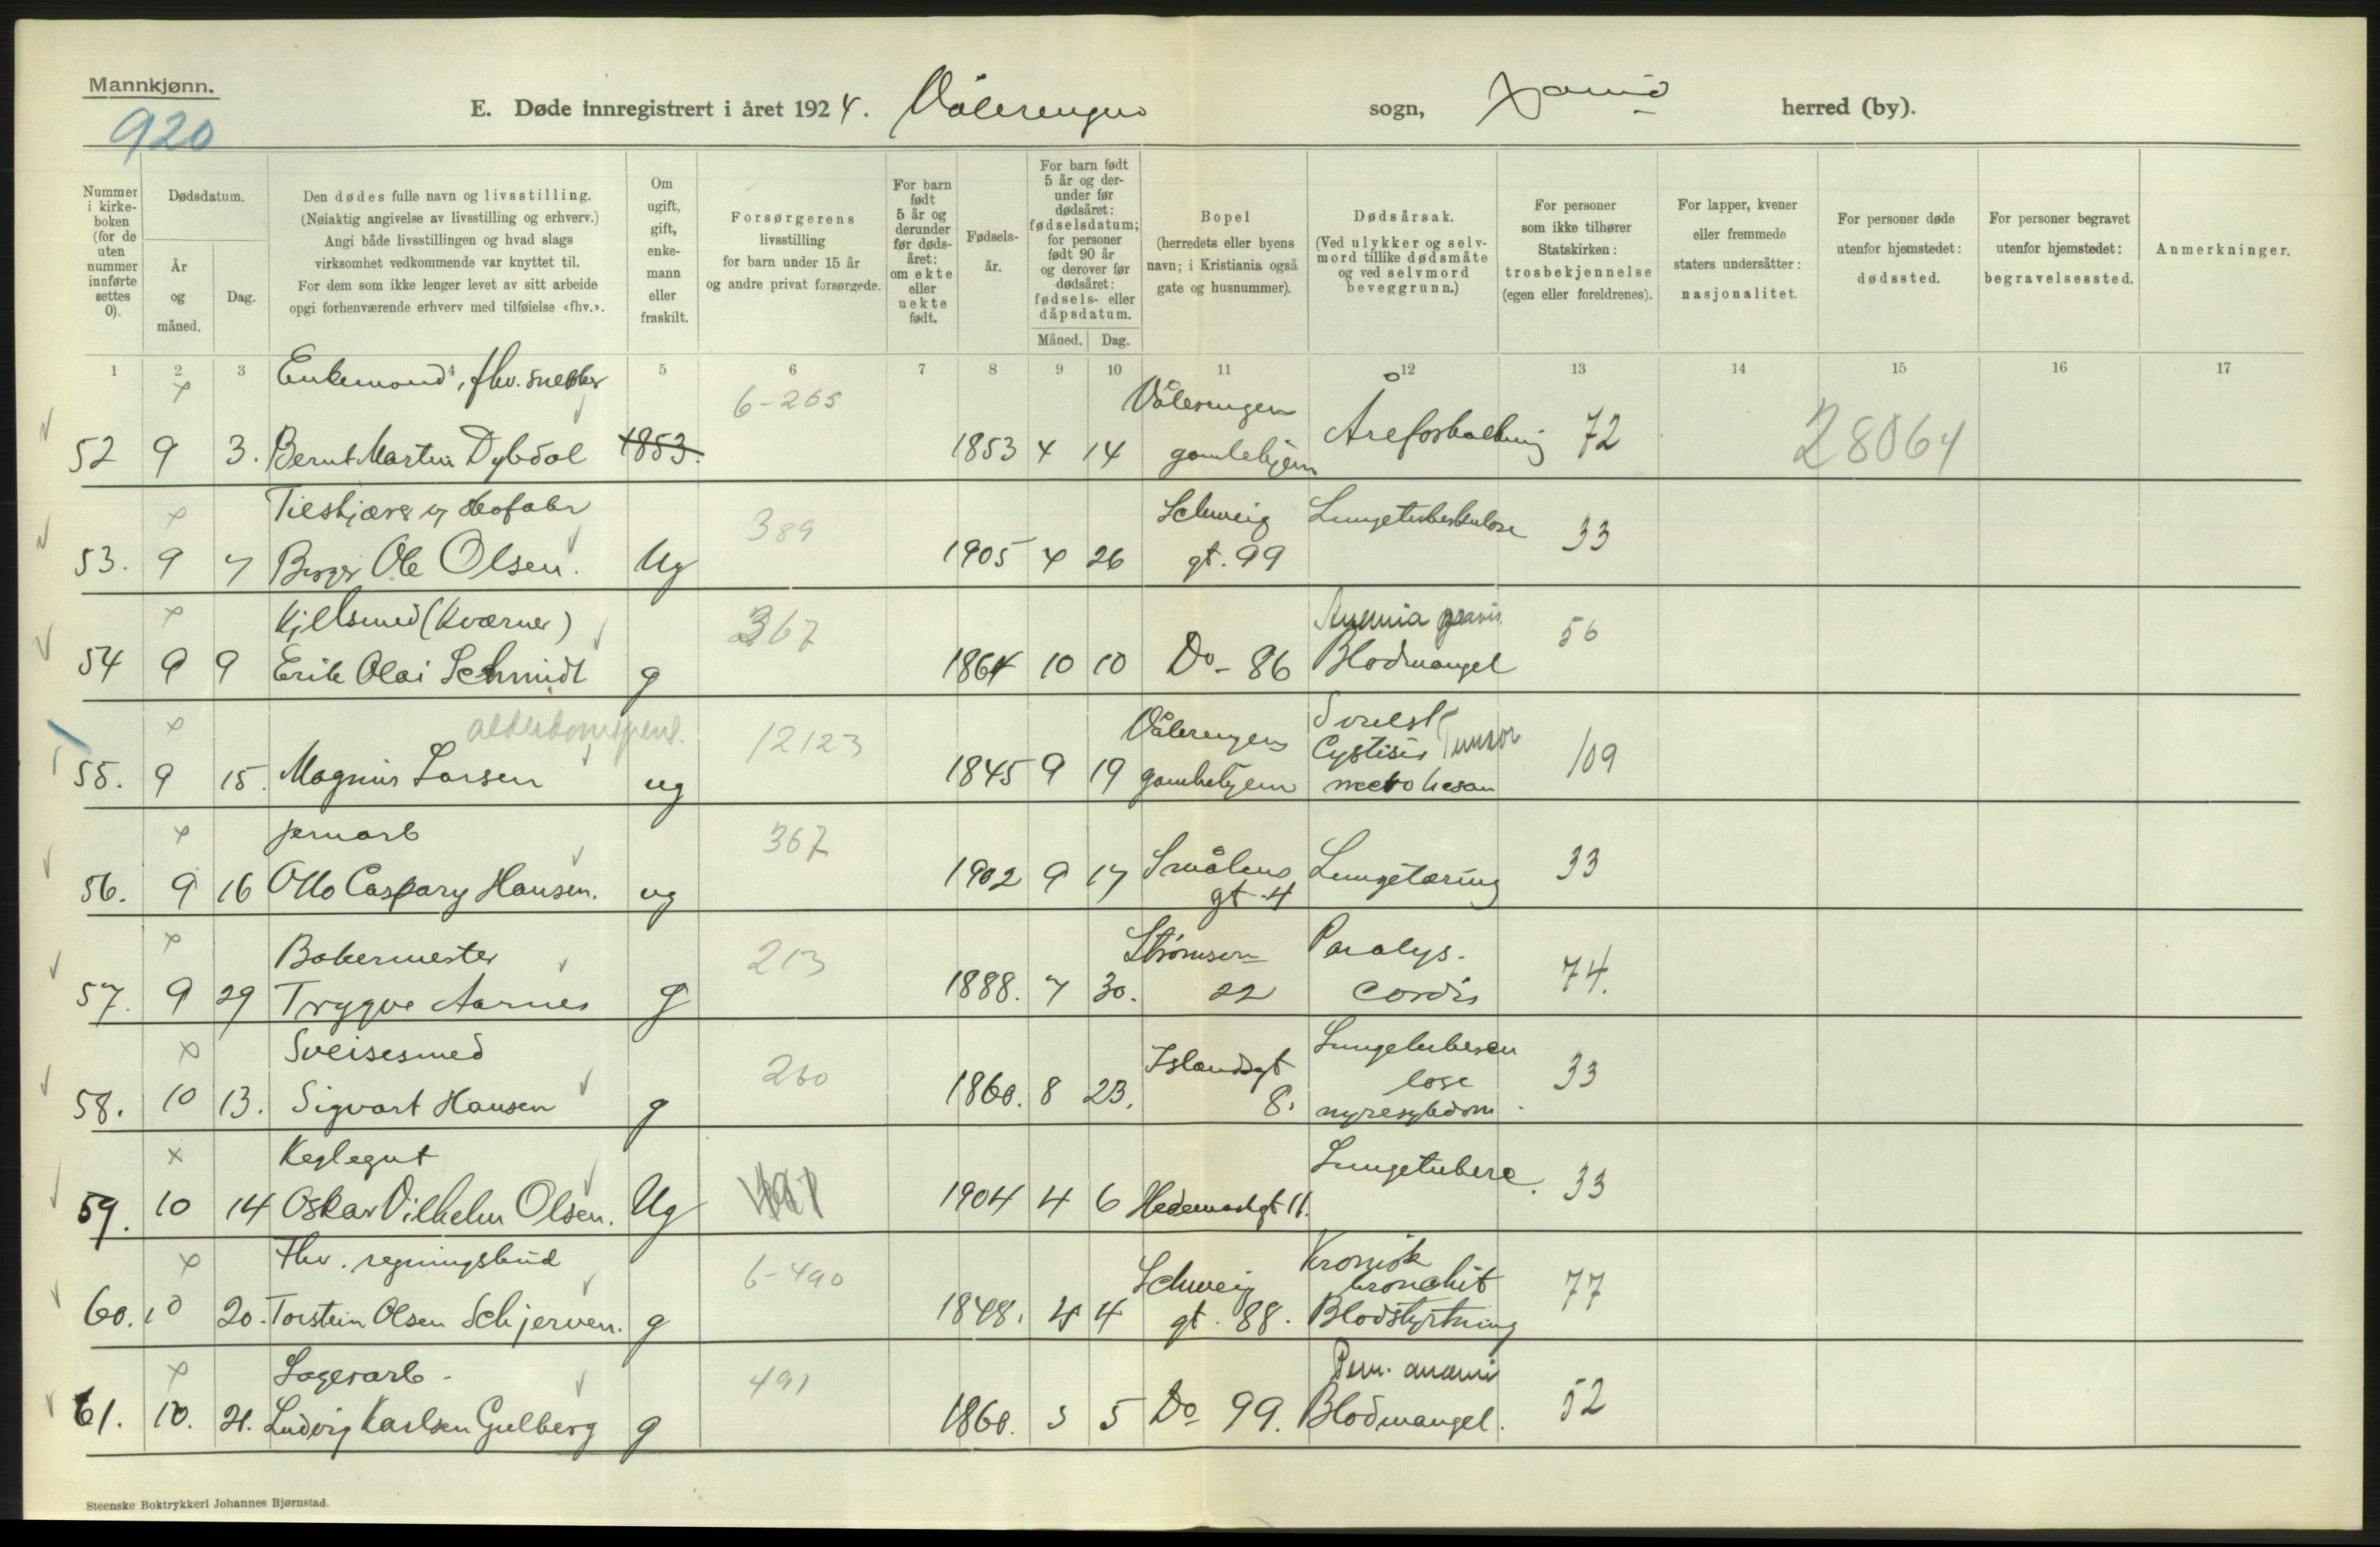 Mannkjønn.
920
E. Døde innregistrert i året 1924. Vålerengen sogn, herred (by).
Nummer i kirkeboken (for de uten nummer innførte settes 0).
Dødsdatum.
År og måned.
Dag.
Den dødes fulle navn og livsstilling.
(Nøiaktig angivelse av livsstilling og erhverv.)
Angi både livsstillingen og hvad slags
virksomhet vedkommende var knyttet til.
For dem som ikke lenger levet av sitt arbeide
opgi forhenværende erhverv med tilføielse «fhv.».
Om ugift, gift, enkemann eller fraskilt.
Forsørgerens livsstilling
for barn under 15 år
og andre privat forsørgede.
For barn født 5 år og derunder før dødsåret: om ekte eller uekte født.
Fødselsår.
For barn født 5 år og derunder før dødsåret: fødselsdatum; for personer født 90 år og derover før dødsåret: fødsels- eller dåpsdatum.
Måned. Dag.
Bopel
(herredets eller byens
navn; i Kristiania også
gate og husnummer).
Dødsårsak.
(Ved ulykker og selvmord tillike dødsmåte og ved selvmord beveggrunn.)
For personer som ikke tilhører Statskirken: trosbekjennelse (egen eller foreldrenes).
For lapper, kvener eller fremmede staters undersåtter: nasjonalitet.
For personer døde utenfor hjemstedet: dødssted.
For personer begravet utenfor hjemstedet: begravelsessted.
Anmerkninger.
1 2 3 4 5 6 7 8 9 10 11 12 13 14 15 16 17
Enkemand, fhv. snekker 6-265 Vålerengen
52 9 3. Bernt Martin Dybdal 1853. 1853 4 14 gamlehjem Åreforkalkning 72 28064
389 Schweig Lungetuberkulose
53. 9 7 Birger Ole Olsen. Ug 1905 4 26 gt. 99 33
Kjelsmed (Kværner) 367 56
54 9 9 Erik Olai Schmidt g 1864 10 10 Do - 86 Blodmangel
alderdomspens. 12123 Vålerengens Cystisis Tumor
55. 9 15. Magnus Larsen ug 1845 9 19 gamlehjem 109
jernarb 367
56. 9 16 Otto Caspary Hansen. ug 1902 9 17 Smålens gt. 4 Lungetæring 33
Bakermester 213 Paralys.
57. 9 29 Trygve Aarnes g 1888. 7 30. 22 cordis 74.
Sveisesmed 260 Islandsgt Lungetubercu
lose
58. 10 13. Sigvart Hansen g 1860. 8 23. 8. nyresykdom. 33
Keglegut Lungetuberc.
59. 10 14 Oskar Vilhelm Olsen. Ug 1904 4 6 Hedemarkgt 11. 33
Fhv. regningsbud 6-490 Schweig Kronisk
bronchit
60. 10 20. Torstein Olsen Schjerven. g 1848. 4 4 gt. 88. Blodstyrtning 77
Lagerarb. 491 Pern. anæmi
61. 10. 21. Ludvig Karlsen Gulberg g 1860. 5 Do 99. Blodmangel. 52
Steenske Boktrykkeri Johannes Bjørnstad.